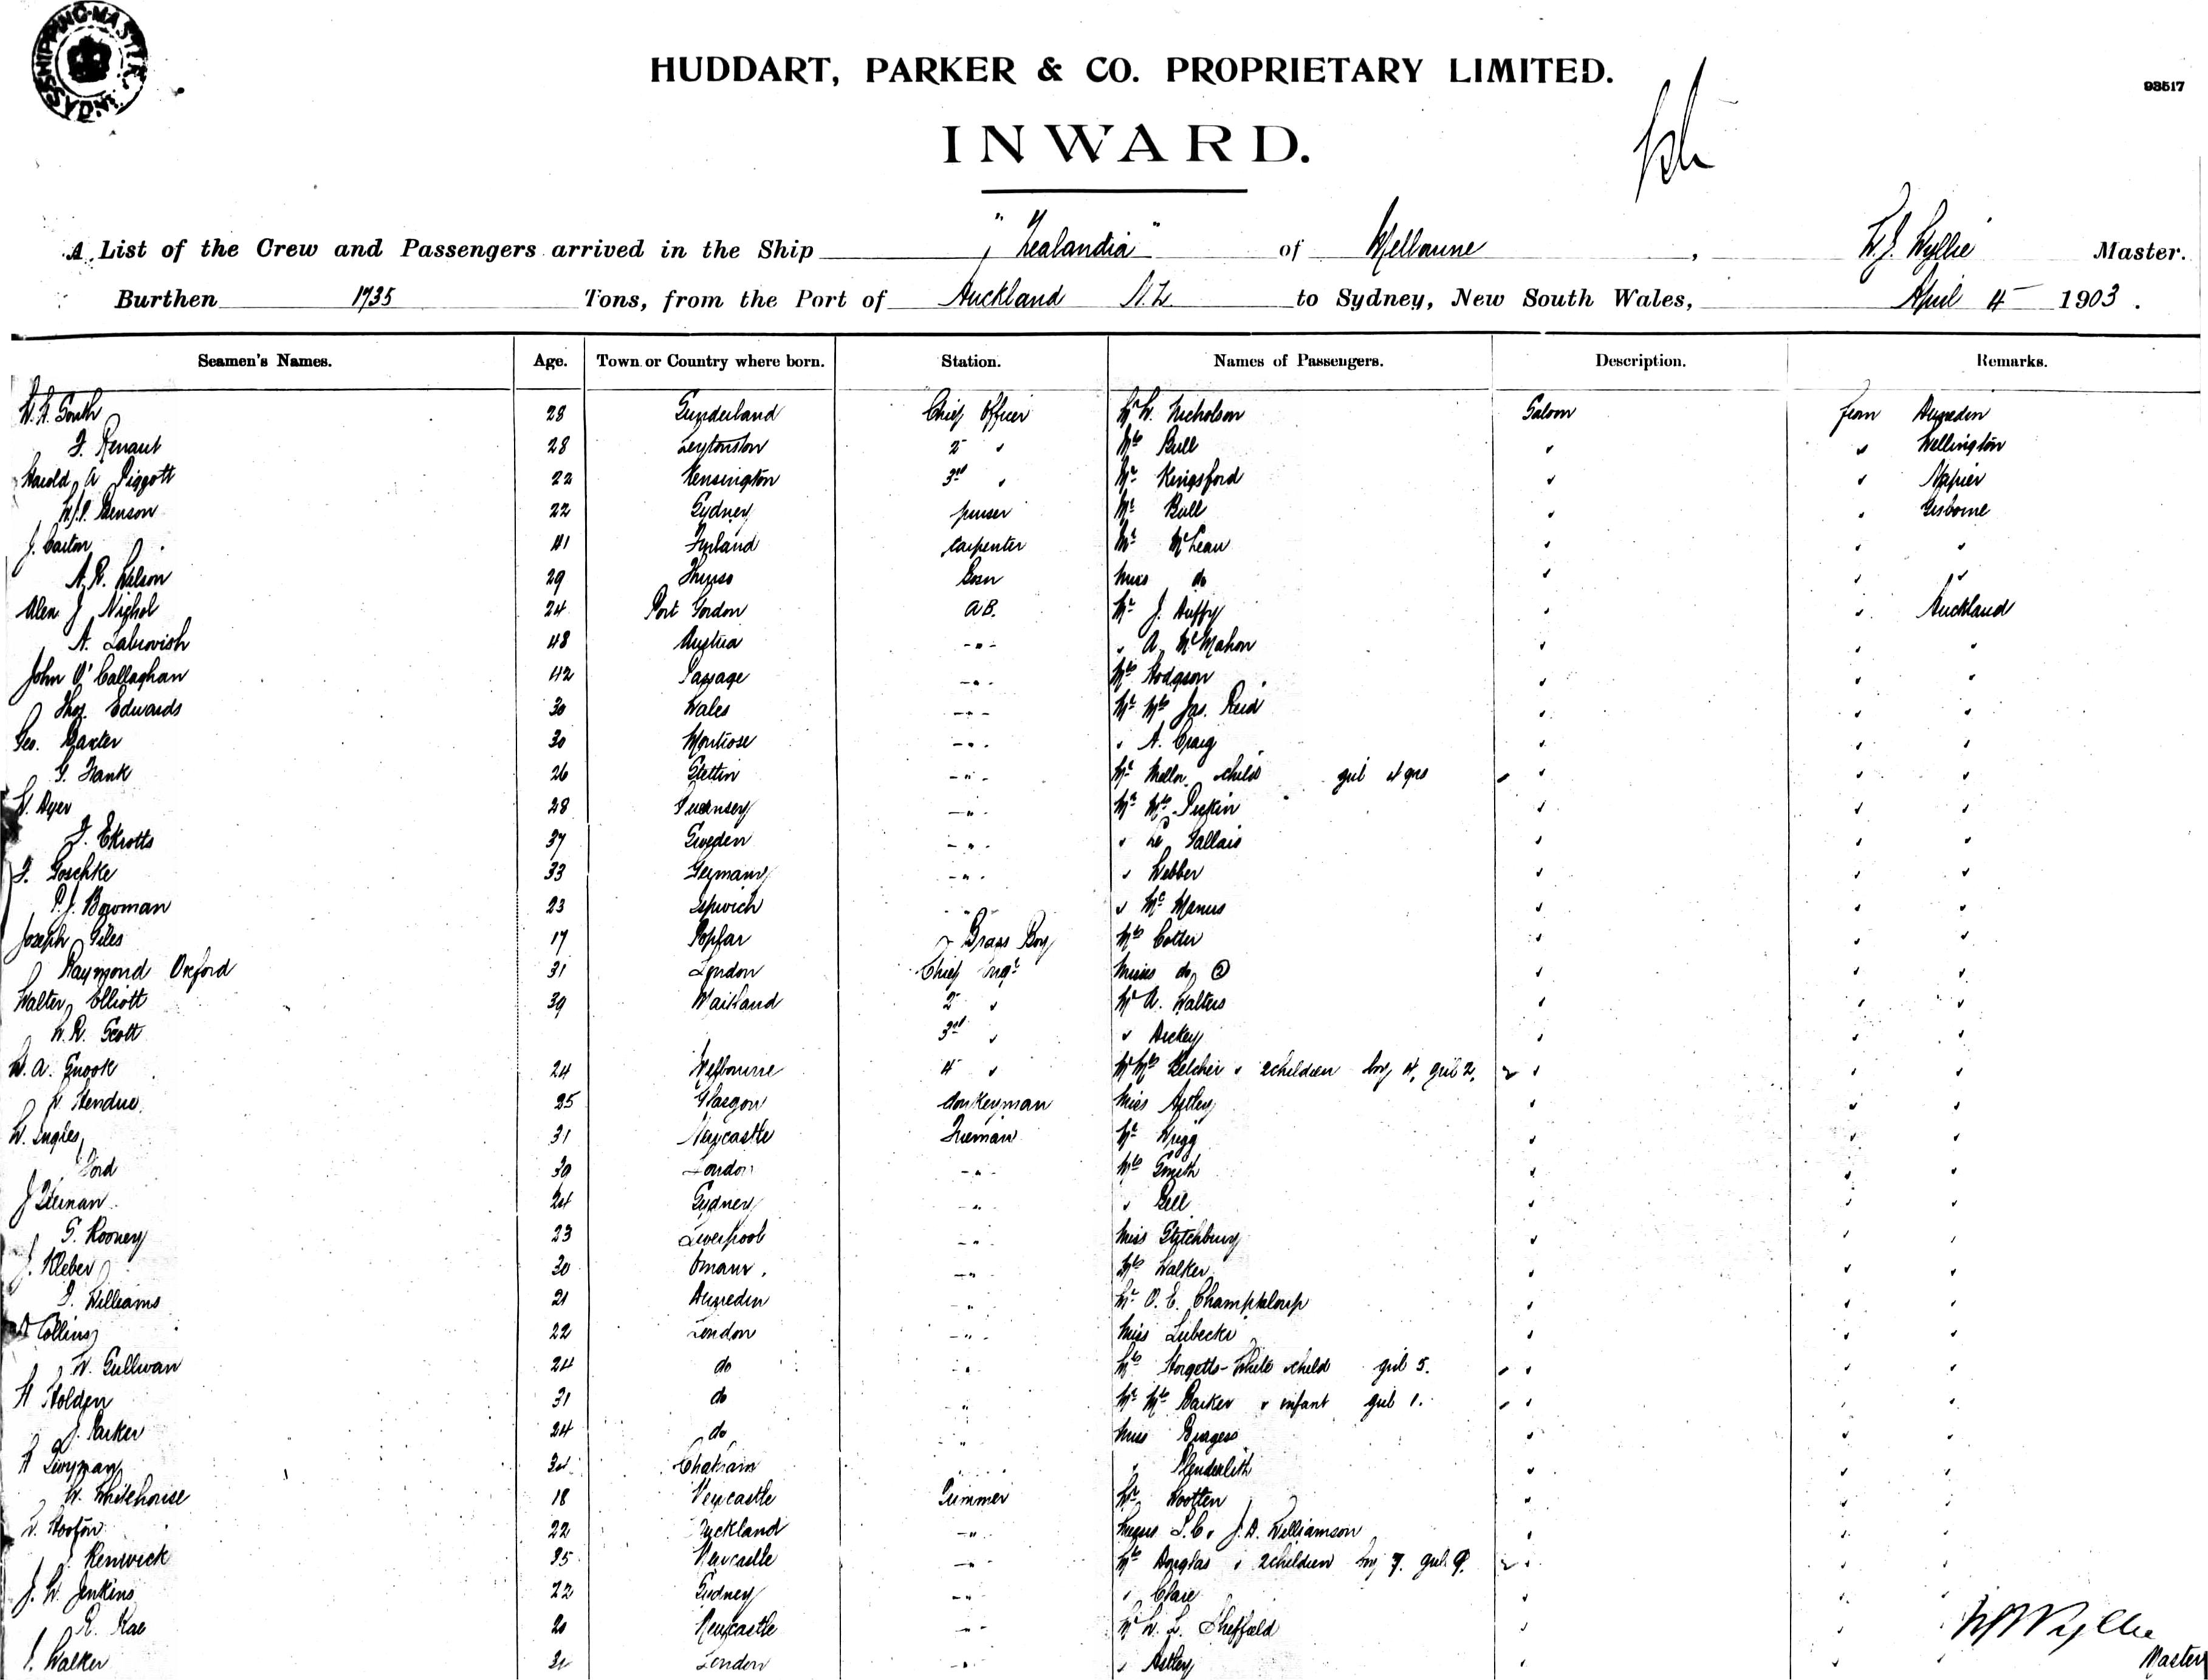 SHIPPING MASTER
HUDDART, PARKER & CO. PROPRIETARY LIMITED.
93517
INWARD.
A List of the Crew and Passengers arrived in the Ship "Zealandia" of Melbourne, W.J. Wyllie Master.
Burthen 1735 Tons, from the Port of Auckland N.Z. to Sydney, New South Wales, April 4 1903.
Seamen's Names. Age. Town or Country where born. Station. Names of Passengers. Description. Remarks.
28 Sunderland Chief Officer Mr W. Nicholson Saloon from Dunedin
F. Renaut 28 Leytonston 2 " Mrs Bull " " Wellington
Harold A Piggott 22 Kensington 3rd " Mr Kingsford " " Napier
Benson 22 Sydney purser Mr Bull " " Gisborne
41 Finland Carpenter Mr McLean " " "
A. R. Wilson 29 Thurso Bosn Miss do " " "
Alex J Nichol 24 Port Gordon AB. Mr J. Duffy " " Auckland
A. 48 Austria -"- " A. McMahon " " "
John O'Callaghan 42 Passage -"- Mrs Hodgson " " "
Thos. Edwards 30 Wales -"- Mr Mrs Jas. Reid " " "
Geo. Baxter 30 Montrose -"- " A. Craig " " "
Frank 26 Stettin -"- Mellor child girl 4 yrs " " "
W. Dyer 28 Guernsey -"- Mr Mrs " " "
37 Sweden -"- " Le Gallais " " "
33 Germany -"- " Webber " " "
P. J. Bowman 23 Ipswich -"- " McManus " " "
Joseph Giles 17 Poplar " Brass Boy Mrs Cotter " " "
Raymond Oxford 31 London Chief Engr Misses do 2 " " "
Walter Elliott 39 Maitland 2 " Mr A. Walters " " "
W. R. Scott 3rd " " Dickey " " "
W. A. Snook 24 Melbourne 4 " Mr Mrs Belcher & 2 children boy 4, girl 2. 2 " " "
25 Glasgow Donkeyman Miss Astley " " "
W. 31 Newcastle Fireman Mr Wrigg " " "
Ford 39 London -"- Mrs Smith " " "
24 Sydney -"- " " " "
Rooney 23 Liverpool -"- Miss Stitchbury " " "
J. Kleber 30 -"- Mrs Walker " " "
Williams 21 Dunedin -"- Mr O. E. Champtaloup " " "
Collins 22 London -"- Miss " " "
W. Sullivan 24 do -"- Mrs White child girl 5. " " "
H Holden 31 do " Mr Mrs Barker & infant girl 1. " " "
J. Parker 24 do " Miss Burgess " " "
Chatham " " Plenderlith " " "
W. Whitehouse 18 Newcastle Trimmer Mr Wootten " " "
22 Auckland -"- J. A. Williamson " " "
Renwick 25 Newcastle -"- Mrs Douglas & 2 children boy 7. girl 9. 2 " " "
J. W. Jenkins 22 Sydney -"- " Clare " " "
R. Rae 20 Newcastle -"- Mr W. L. Sheffield " " "
Walker London -"- " Astley " " "
W J Wyllie
Master